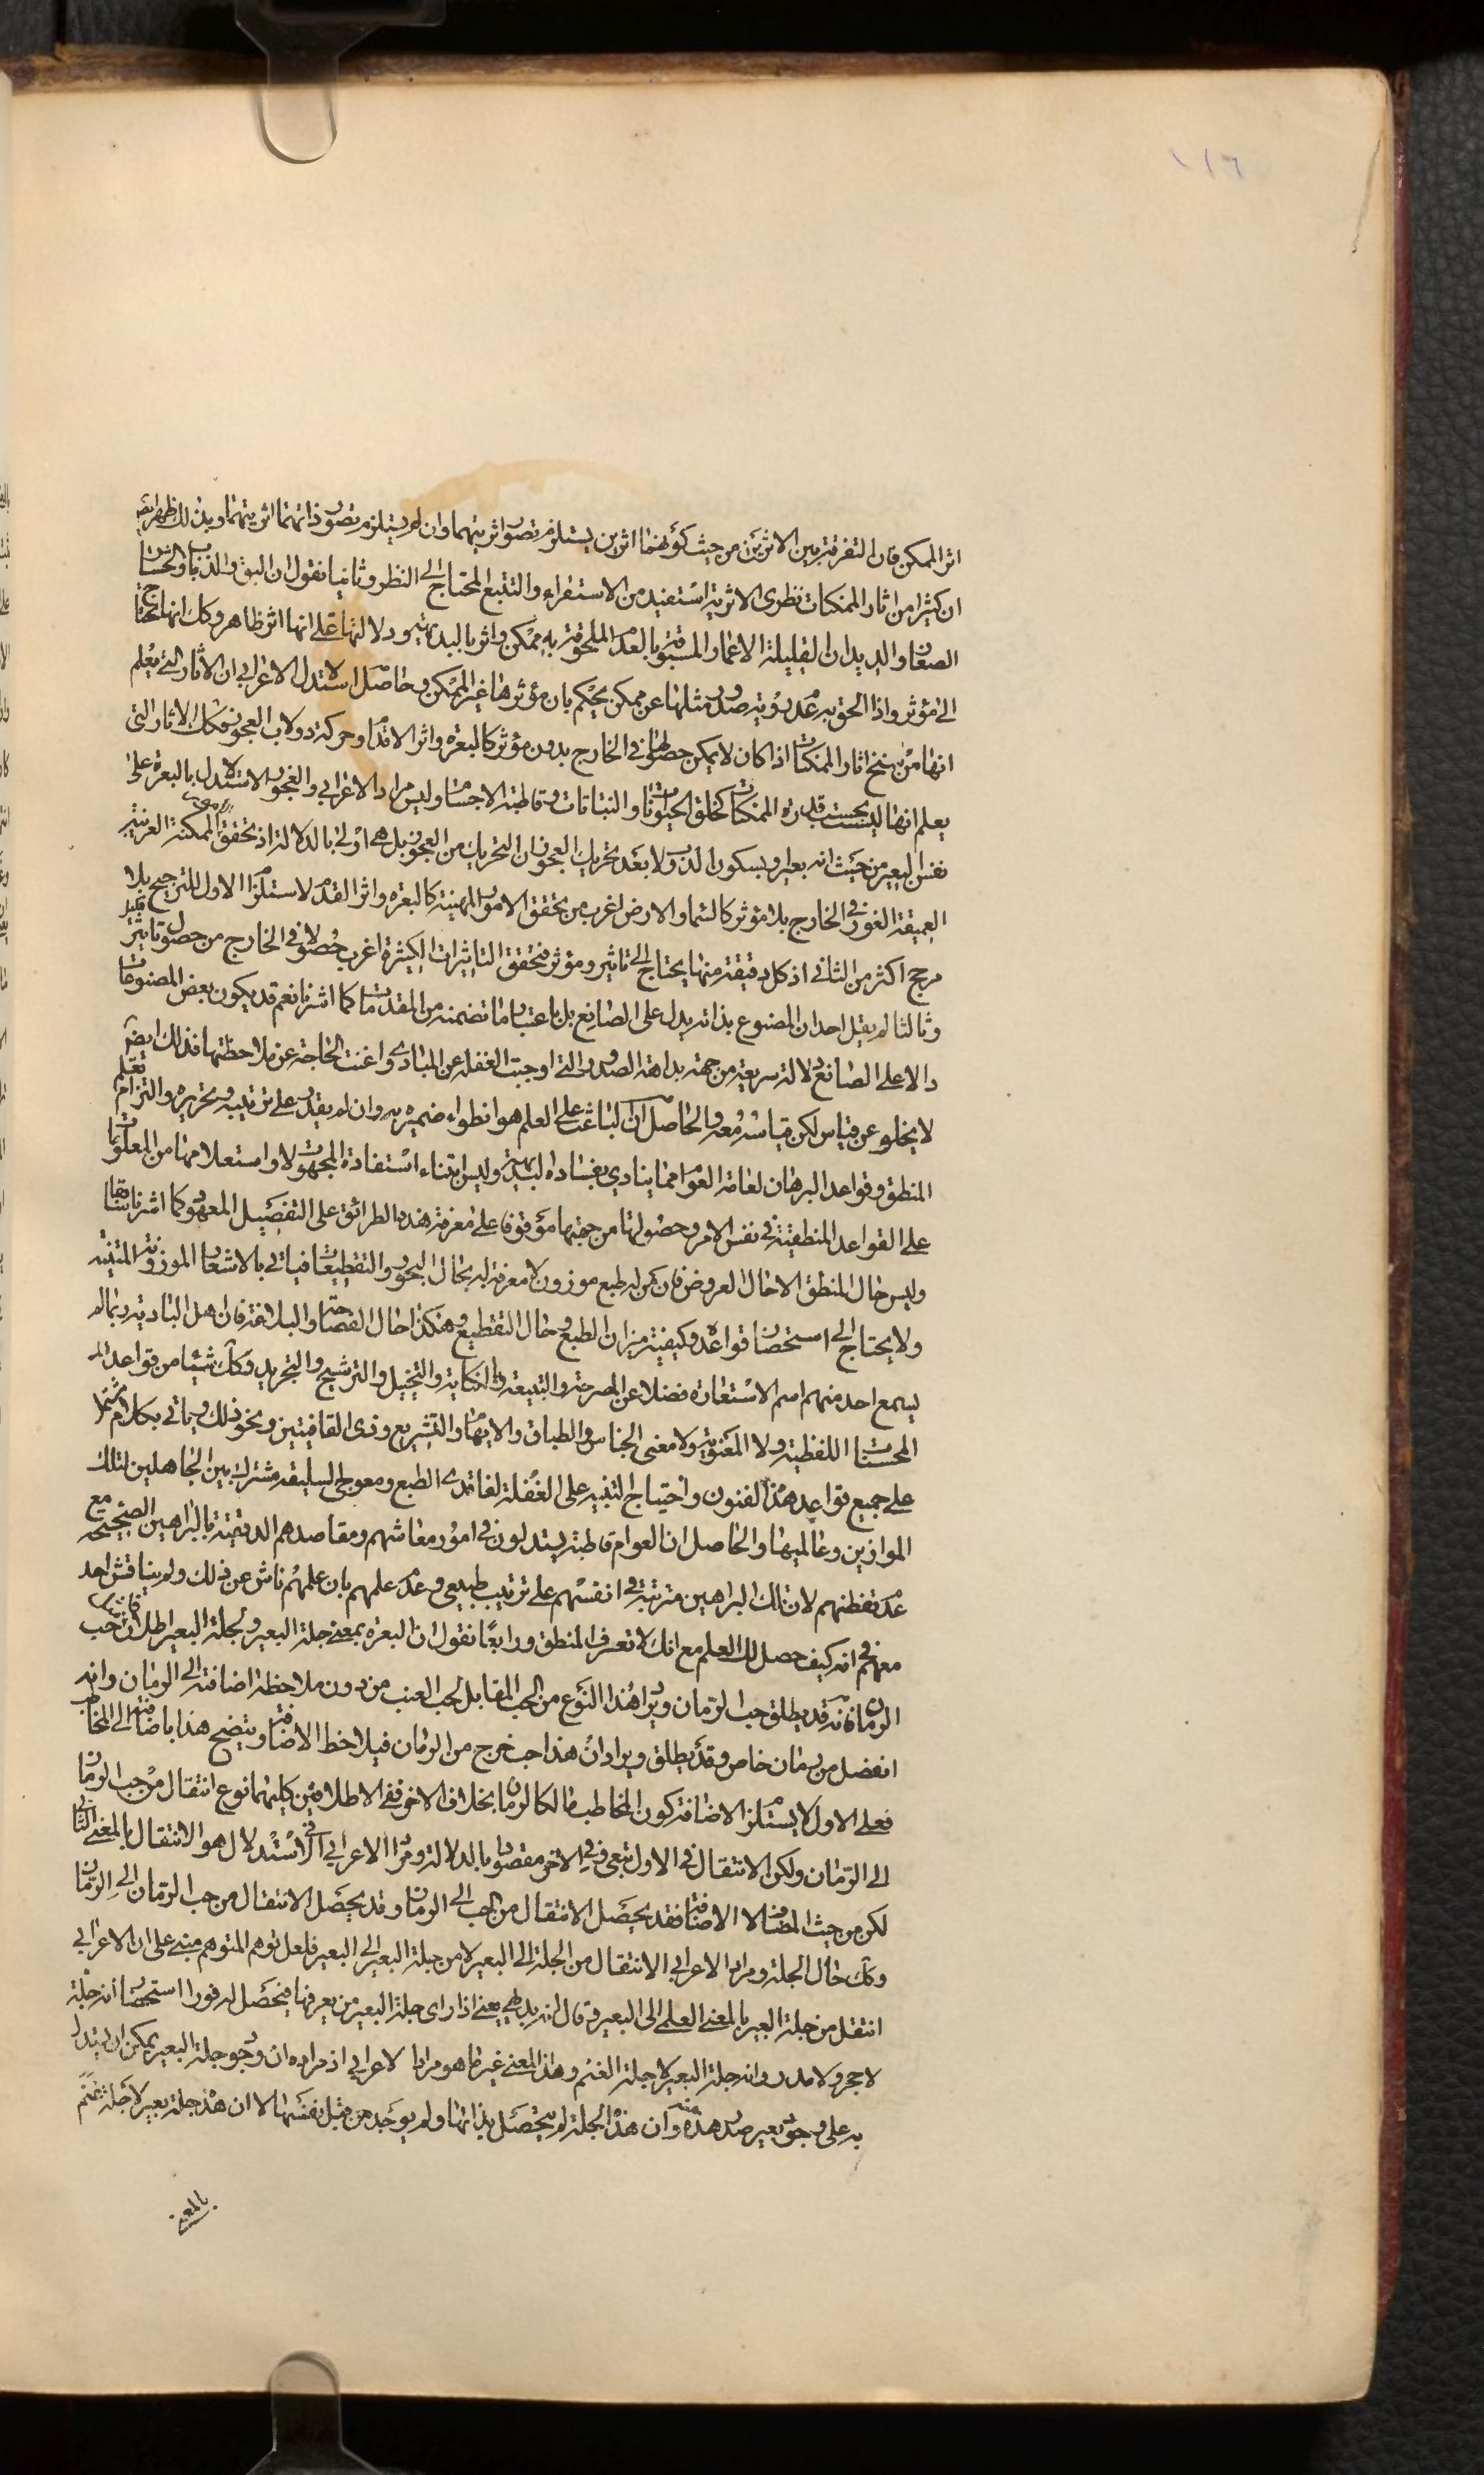 ١١٦
اثر الممكن فان التفرقة بين الاثرين من حيث كونهما اثرين يستلزم تصور اثريتهما وان لم يستلزم تصور ذاتهما اثريتهما وبذلك ظهر ايضا
ان كثيرا من اثار الممكنات نظرى الاثرية استفيد من الاستقراء والتتبع المحتاج الى النظر وثانيا نقول ان البق والذباب والحشرات
الصغار والديدان القليلة الاعمار المسبوقة بالعدم الملحوقة به ممكن واثر بالبديهة ودلالتها على انها اثر ظاهر وكك انها تحتاج
الى مؤثر واذا الحق به عدم رؤية صدور مثلها عن ممكن يحكم بان مؤثرها غير الممكن وحاصل استدلال الاعرابي ان الاثار التي يعلم
انها من سنخ اثار الممكنات اذا كان لا يمكن حصولها في الخارج بدون مؤثر كالبعرة واثر الاقدام وحركة دولاب العجوز فكك الاثار التي
يعلم انها ليست بحسب قدرة الممكنات كخلق الحيوانات والنباتات وقاطبة الاجسام وليس مراد الاعرابي والعجوز الاستدلال بالبعرة على
نفس البعير من حيث انه بعير وبسكون الدولاب بعد تحريك العجوز ان التحريك من العجوز بل هي اولى بالدلالة اذ تحقق الممكنة الغريبة
العميقة الغور في الخارج بلا مؤثر كالسماء والارض اغرب من تحقق الامور المهينة كالبعرة واثر القدم لاستلزام الاول للترجيح بلا
مرجح اكثر من الثاني اذ كل دقيقة منها يحتاج الى تاثير ومؤثر فتحقق التاثيرات الكثيرة اغرب حصولا في الخارج من حصول تاثير
وثالثا لم يقل احد ان المصنوع بذاته يدل على الصانع بل باعتبار ما تضمنه من المقدمات كما اشرنا نعم قد يكون بعض المصنوعات
دالا على الصانع دلالة سريعة من جهة بداهة الصدور التي اوجبت الغفلة عن المبادى واغنت الحاجة عن ملاحظتها فذلك ايضا
لا يخلو عن قياس لكن قياسه معه والحاصل ان الباعث على العلم هو انطواء ضميره به وان لم يقدر على ترتيبه وتحريره والتزام تعلم
المنطق وقواعد البرهان لعامة العوام مما ينادي بفساده البديهة وليس ابتناء استفادة المجهولات واستعلامها من المعلومات
على القواعد المنطقية في نفس الامر وحصولها من جهتها موقوفا على معرفة هذه الطرائق على التفصيل المعهود كما اشرنا سابقا
وليس حال المنطق الا حال العروض فان من له طبع موزون لا معرفة له بحال البحور والتقطيعات فياتي بالاشعار الموزونة المتينة
ولا يحتاج الى استحضار قواعده وكيفية ميزان الطبع وحال التقطيع وهكذا حال الفصاحة والبلاغة فان اهل البادية ربما لم
يسمع احد منهم اسم الاستعارة فضلا عن المصرحة والتبعية والكناية والتخييل والترشيح والتجريد وكك شيئا من قواعد
المحسنات اللفظية ولا المعنوية ولا معنى الجناس والطباق والايهام والتشريع وذى القافيتين ونحو ذلك وياتي بكلام مشتمل
على جميع قواعد هذا الفنون واحتياج التنبيه على الغفلة لفاقدى الطبع ومعوجي السليقة مشترك بين الجاهلين لتلك
الموازين وعالميها والحاصل ان العوام قاطبة يستدلون في امور معاشهم ومقاصدهم الدقيقة بالبراهين الصحيحة مع
عدم تفطنهم لان تلك البراهين مترتبة في انفسهم على ترتيب طبيعي وعدم علمهم بان علمهم ناش عن ذلك ولم يناقش احد
معهم في انه كيف حصل لك العلم مع انك لا تعرف المنطق ورابعا نقول ان البعرة بمعنى جلة البعير ولجلة البعير اطلاقان كحب
الرمان فانه قد يطلق حب الرمان ويراد هذا النوع من الحب المقابل لحب العنب من دون ملاحظة اضافته الى الرمان وانه
انفصل من رمان خاص وقد يطلق ويراد ان هذا حب خرج من الرمان فيلاحظ الاضافة ويتضح هذا باضافته الى المخاطب
فعلى الاول لا يستلزم الاضافة كون المخاطب مالكا لرمان بخلاف الاخر ففي الاطلاقين كليهما نوع انتقال من حب الرمان
الى الرمان ولكن الانتقال في الاول تبعي وفي الاخر مقصود بالدلالة ومراد الاعرابي في الاستدلال هو الانتقال بالمعنى الثاني
لكن من حيث المضاف لا الاضافة فقد يحصل الانتقال من الحب الى الرمان وقد يحصل الانتقال من حب الرمان الى الرمان
وكك حال الجلة ومراد الاعرابي الانتقال من الجلة الى البعير لا من جلة البعير الى البعير فلعل توهم المتوهم مبني على ان الاعرابي
انتقل من جلة البعير بالمعنى العلمي الى البعير وقال انه بديهي يعني اذا راى جلة البعير من يعرفها فيحصل له فورا استحضار انه جلة
لا حجر ولا مدر وانه جلة البعير لا جلة الغنم وهذا المعنى غير ما هو مراد الاعرابي اذ مراده ان وجود جلة البعير يمكن ان يستدل
به على وجود بعير صدر هذه عنه وان هذه الجلة لم يتحصل بذاتها ولم يوجد من قبل نفسها لا ان هذه جلة بعير لا جلة غنم
بالمعنى